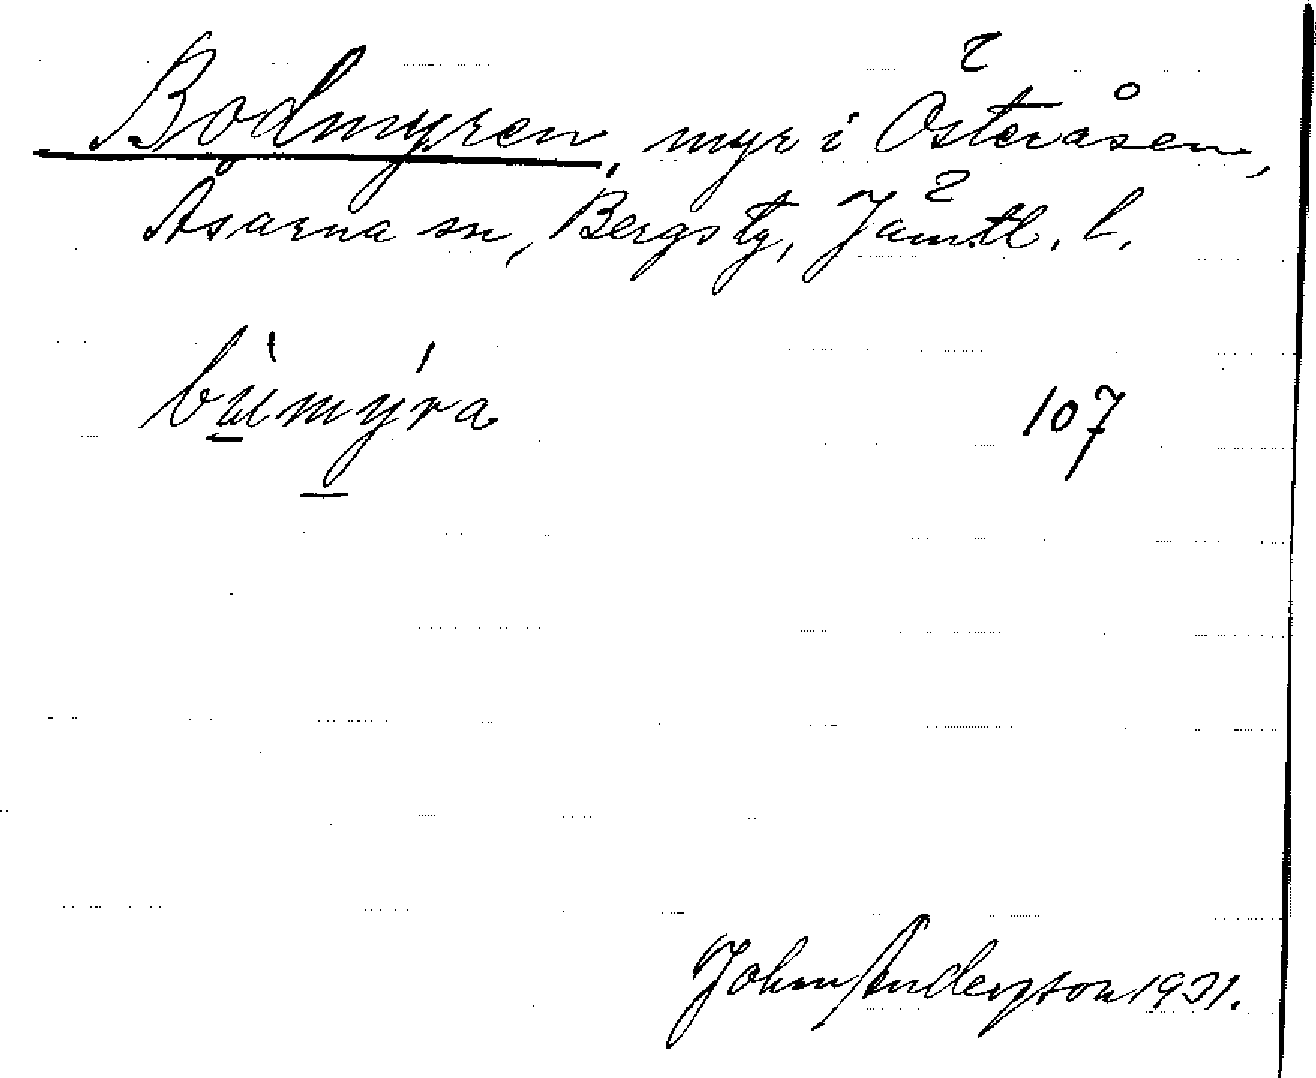 Bodmyren, myr i Österåsen,
Åsarna sn, Bergs tg, Jämtl. l.
bùmýra 107
John Andersson 1931.